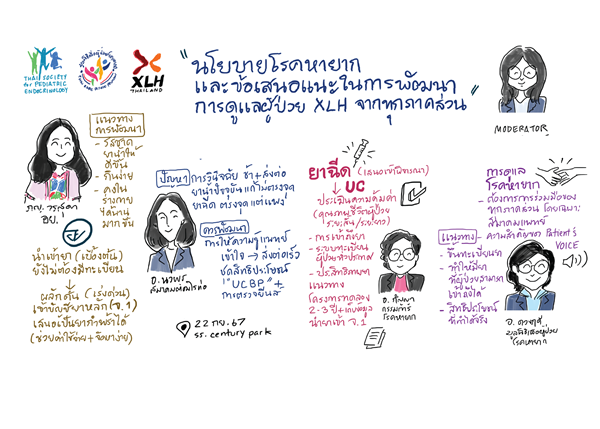 THAI SOCIETY
for PEDIATRIC
ENDOCRINOLOGY
XLH
THAILAND
"นโยบายโรคหายาก
และข้อเสนอแนะในการพัฒนา
การดูแลผู้ป่วย XLH จากทุกภาคส่วน"
MODERATOR
แนวทาง
การพัฒนา
- รสชาติ
ยาน้ำให้
ดีขึ้น
- กินง่าย
- คงใน
ร่างกาย
ได้นาน
มากขึ้น
อย.
นำเข้ายา (เบื้องต้น)
ยังไม่ต้องมีทะเบียน
ผลักดัน (เร่งด่วน)
เข้าบัญชียาหลัก (จ.1)
เสนอเป็นยากำพร้าได้
ปัญหา
การวินิจฉัย ช้า + ส่งต่อ
ยาน้ำปัจจุบัน แก้ไม่ตรงจุด
ยาฉีด ตรงจุด แต่แพง
การพัฒนา
การให้ความรู้แพทย์
เข้าใจ → ส่งต่อเร็ว
ชุดสิทธิประโยชน์
"UCBP" +
การตรวจยีนส์
22 กย. 67
ss. century park
ยาฉีด
UC
→ ประเมินความคุ้มค่า
- การเข้าถึงยา
- ระบบทะเบียน
ผู้ป่วยทั่วประเทศ
- ประสิทธิภาพยา
แนวทาง
โครงการทดลอง
2-3 ปี + เก็บข้อมูล
นำยาเข้า จ.1
กรรมการ
โรคหายาก
การดูแล
โรคหายาก
- ต้องการการร่วมมือของ
ทุกภาคส่วน โดยเฉพาะ
สมาคมแพทย์
- ความสำคัญของ Patient's
VOICE
แนวทาง
- ขึ้นทะเบียนยา
- ทำให้มียา
ที่ผู้ป่วยสามารถ
เข้าถึงได้
- สิทธิประโยชน์
ที่ทำได้จริง
มูลนิธิเพื่อผู้ป่วย
โรคหายาก